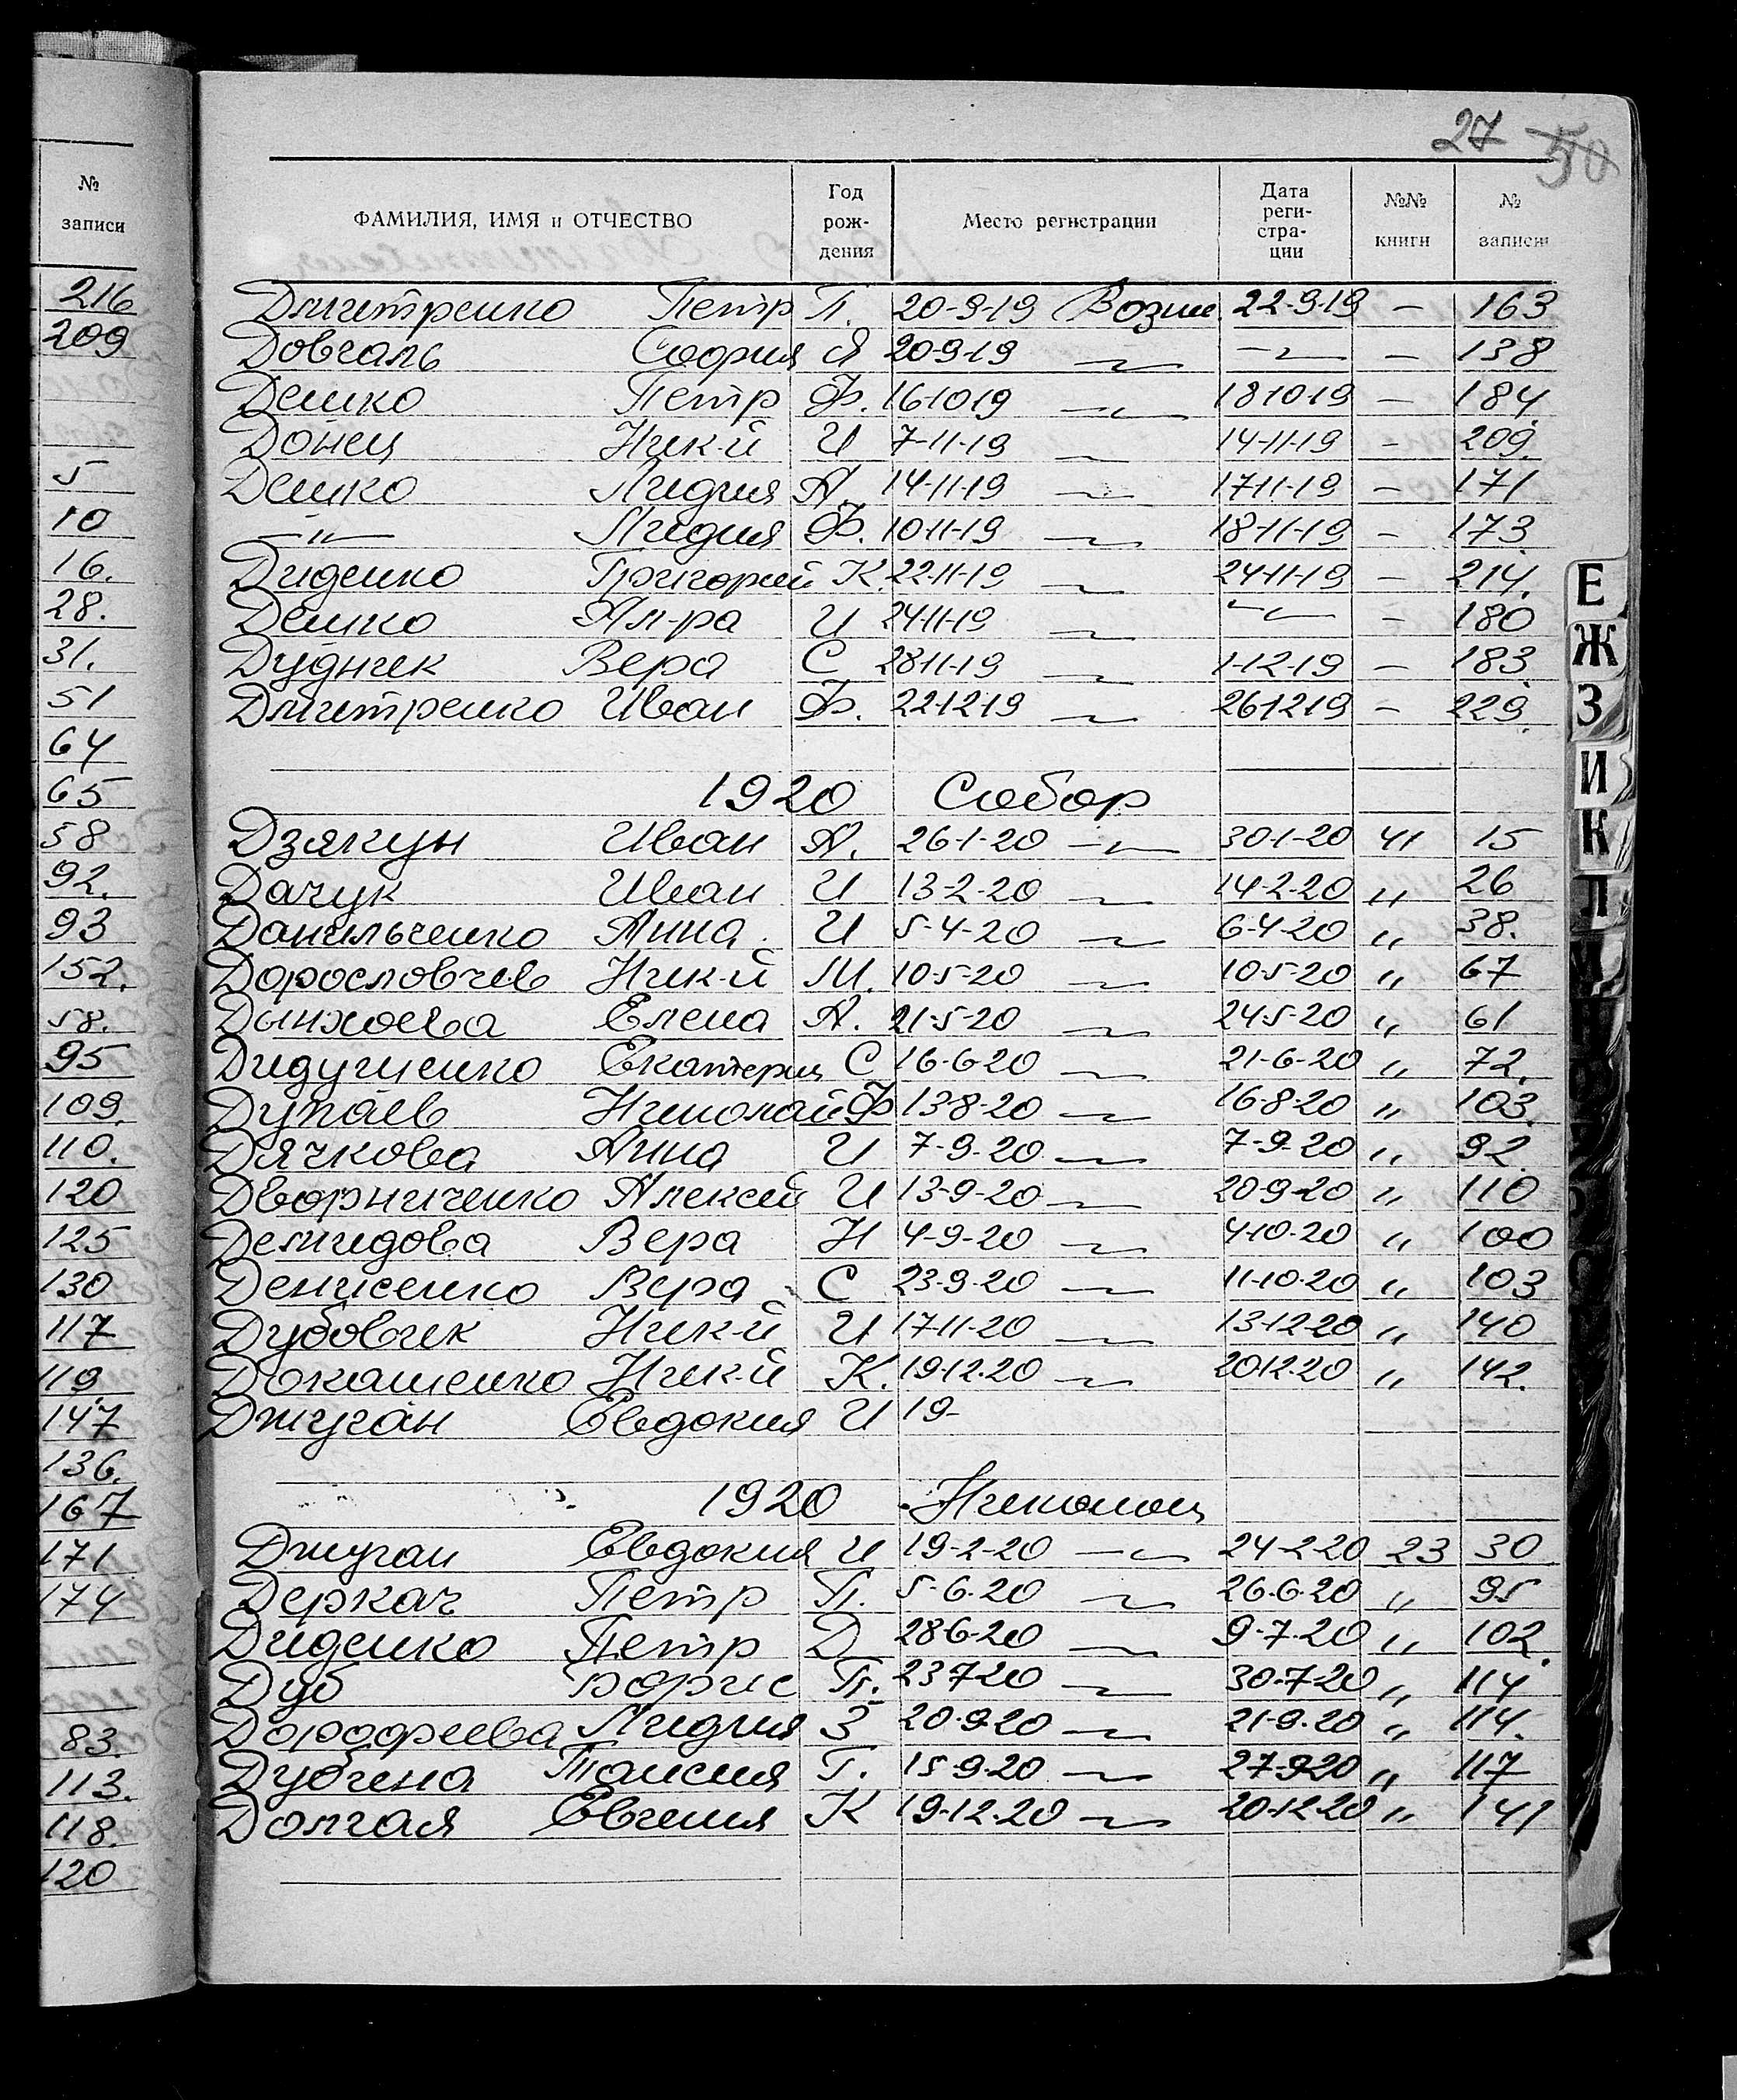 27 50
№ записи
216
209
5
10
16.
28.
31.
51
64
65
58
92.
93
152.
58.
95
109.
110.
120
125
130
117
119.
147
136.
167
171
174
83.
113.
118.
120
ФАМИЛИЯ, ИМЯ и ОТЧЕСТВО Год рож- дения Место регистрации Дата реги- стра- ции №№ книги № записи
Дмитренко Петр П. 20-9-19 Возне. 22-9-19 — 163
Довгаль София Я 20-9-19 —„— —„— — 138
Демко Петр Ф. 16-10-19 —„— 18-10-19 — 184
Донец Ник-й И 7-11-19 —„— 14-11-19 — 209
Демко Лидия А. 14-11-19 —„— 17-11-19 — 171
—„— Лидия Ф. 10-11-19 —„— 18-11-19 — 173
Диденко Григорий К. 22-11-19 —„— 24-11-19 — 214.
Демко Ал-ра И 24-11-19 —„— —„— — 180
Дудник Вера С 28-11-19 —„— 1-12-19 — 183
Дмитренко Иван Ф. 22-12-19 —„— 26-12-19 — 229.
1920 Собор
Дзякун Иван А. 26-1-20 —„— 30-1-20 41 15
Дачук Иван И 13-2-20 —„— 14-2-20 „ 26
Данильченко Анна И 5-4-20 —„— 6-4-20 „ 38.
Дорословчев Ник-й М. 10-5-20 —„— 10-5-20 „ 67
Елена А. 21-5-20 —„— 24-5-20 „ 61
Екатерин С 16-6-20 —„— 21-6-20 „ 72.
Дупаев Николай Ф 13-8-20 —„— 16-8-20 „ 103.
Дячкова Анна И 7-9-20 —„— 7-9-20 „ 92
Дворниченко Алексей И 13-9-20 —„— 20-9-20 „ 110
Демидова Вера Н 4-9-20 —„— 4-10-20 „ 100
Денисенко Вера С 23-9-20 —„— 11-10-20 „ 103
Дубовик Ник-й И 17-11-20 —„— 13-12-20 „ 140
Докашенко Ник-й К. 19-12-20 —„— 20-12-20 „ 142.
Джуган Евдокия И 19-
1920 Николаев
Джуган Евдокия И 19-2-20 —„— 24-2-20 23 30
Деркач Петр П. 5-6-20 —„— 26-6-20 „ 95
Диденко Петр Д 28-6-20 —„— 9-7-20 „ 102.
Дуб Борис Г. 23-7-20 —„— 30-7-20 „ 114
Дорофеева Лидия З 20-9-20 —„— 21-9-20 „ 114.
Дубчена Таисия Г. 15-9-20 —„— 27-9-20 „ 117
Долгая Евгения К 19-12-20 —„— 20-12-20 „ 141
Е
Ж
З
И
К
Л
М